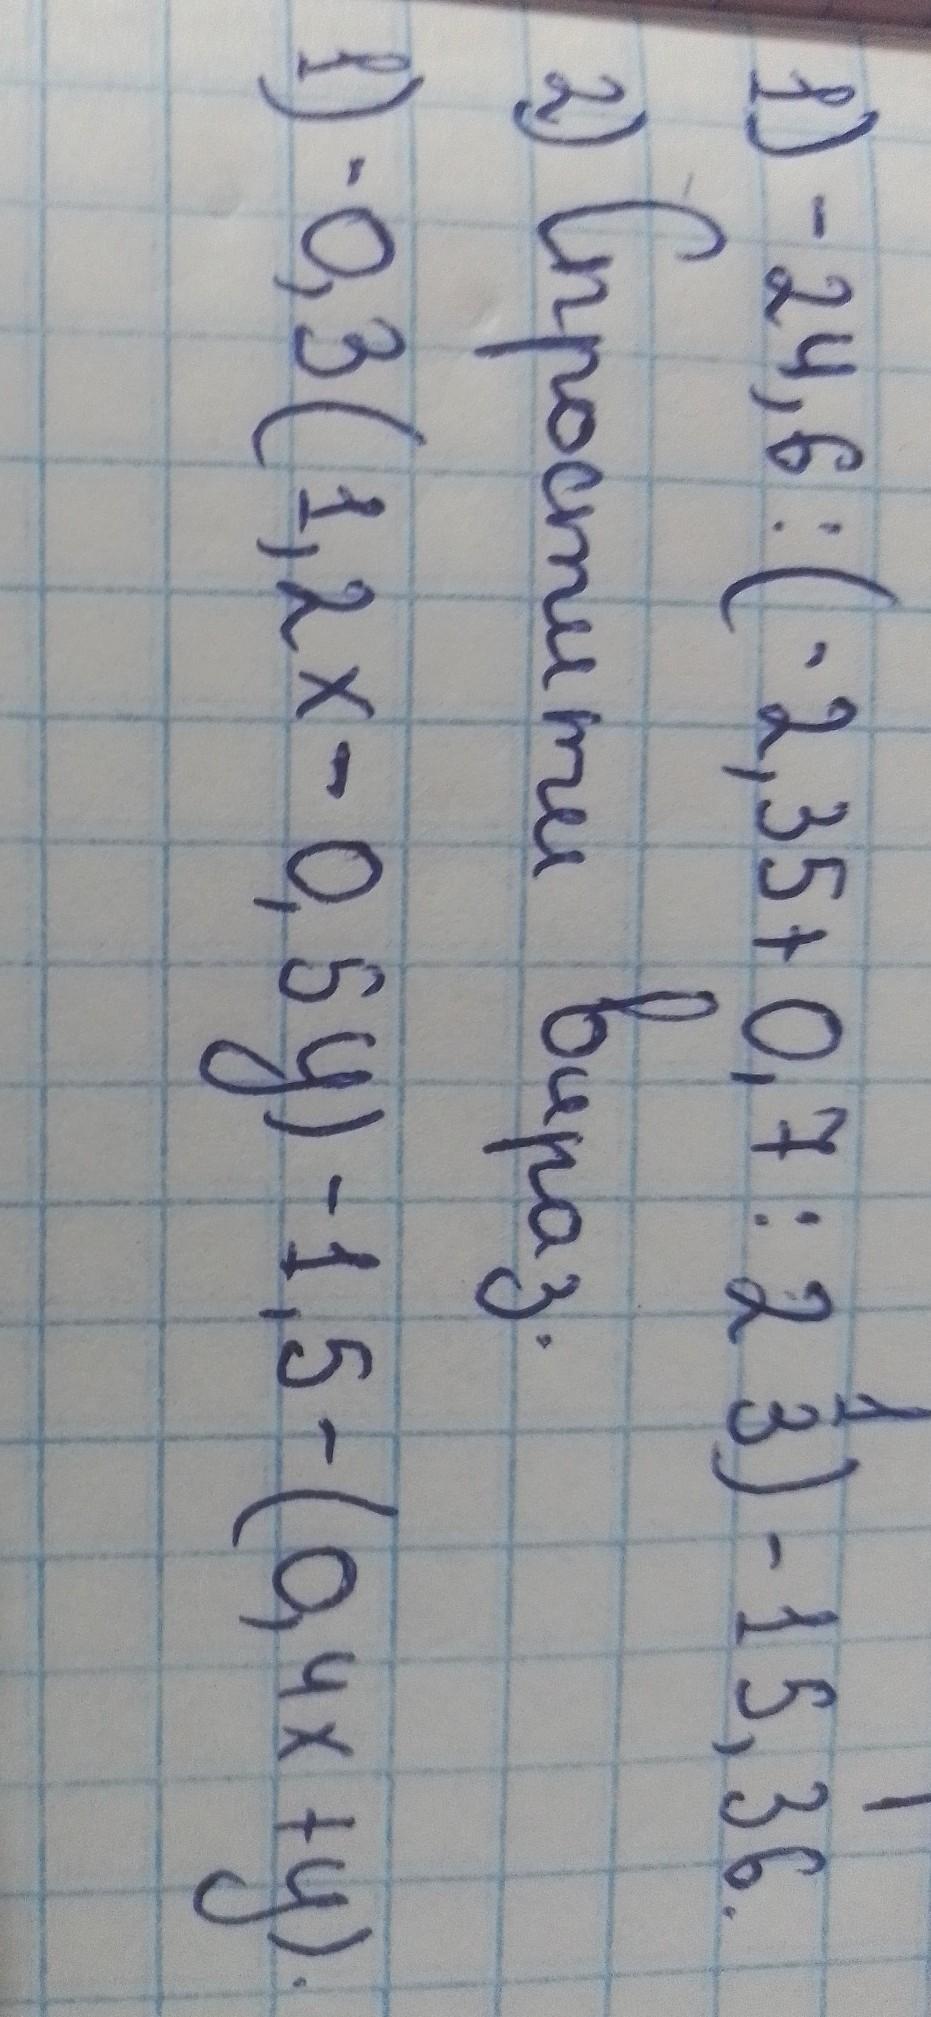 1) -24,6:(-2,35+0,7:2 1/3)-15,36.
2) Спростити вираз.
1) -0,3(1,2x-0,5y)-1,5-(0,4x+y).